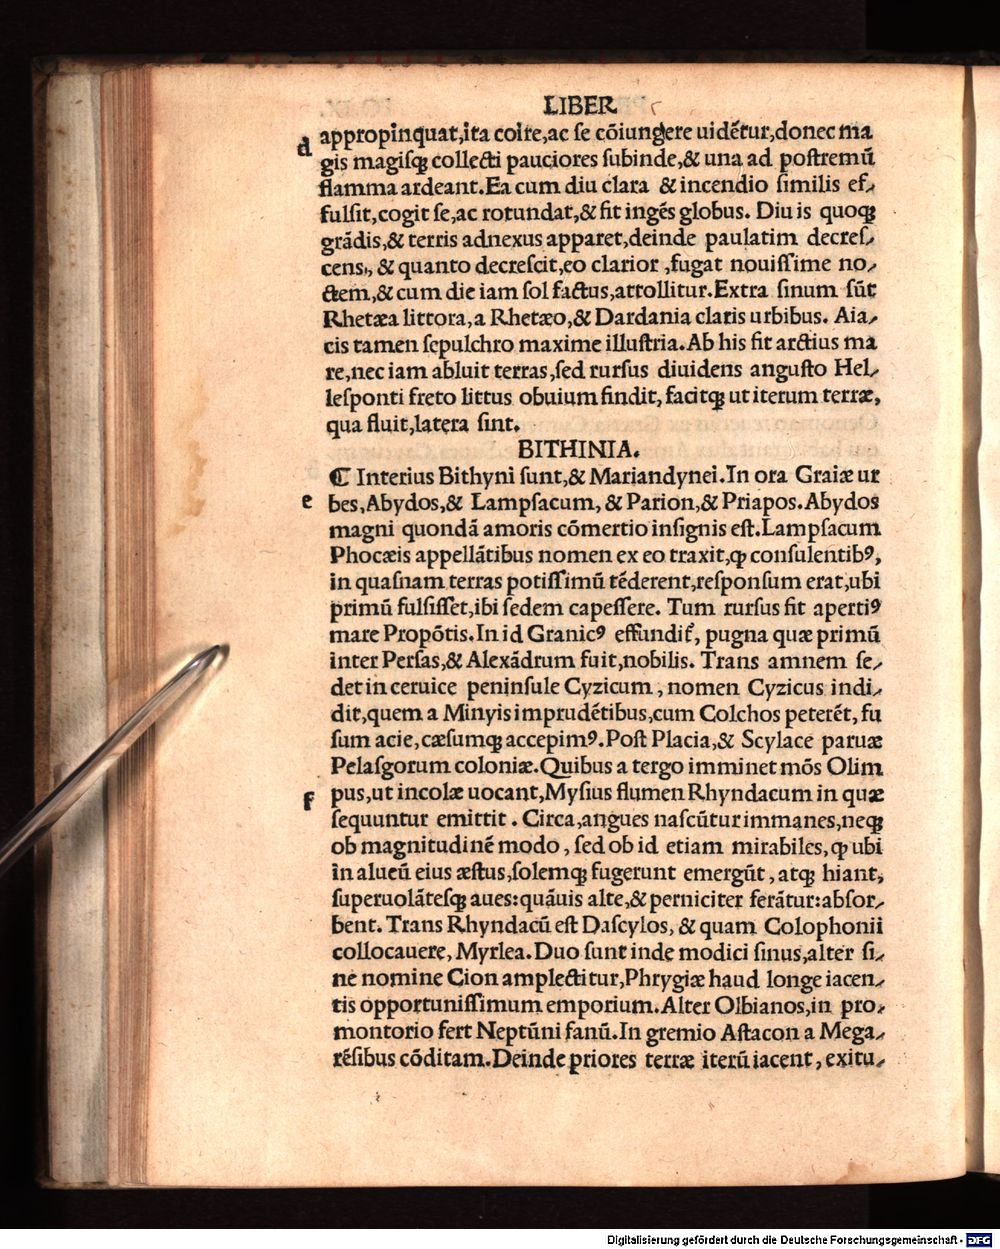 LIBER
d
appropinquat,ita coire,ac ſe cõiungere uidẽtur,donec ma
gis magiſqꝫ collecti pauciores ſubinde,& una ad poſtremũ
flamma ardeant.Ea cum diu clara & incendio ſimilis ef⸗
fulſit,cogit ſe,ac rotundat,& fit ingẽs globus. Diu is quoqꝫ
grãdis,& terris adnexus apparet,deinde paulatim decreſ⸗
cens,, & quanto decreſcit,eo clarior ,fugat nouiſſime no⸗
ctem,& cum die iam ſol factus,attollitur.Extra ſinum ſũt
Rhetæa littora,a Rhetæo,& Dardania claris urbibus. Aia⸗
cis tamen ſepulchro maxime illuſtria.Ab his fit arctius ma
re,nec iam abluit terras,ſed rurſus diuidens anguſto Hel⸗
leſponti freto littus obuium findit, facitqꝫ ut iterum terræ,
qua fluit,latera ſint.
BITHINIA.
⸿ Interius Bithyni ſunt,& Mariandynei.In ora Graiæ ur
e
bes,Abydos,& Lampſacum, & Parion,& Priapos.Abydos
magni quondã amoris cõmertio inſignis eſt.Lampſacum
Phocæis appellãtibus nomen ex eo traxit,ꝙ conſulentibꝰ,
in quaſnam terras potiſſimũ tẽderent,reſponſum erat,ubi
primũ fulſiſſet,ibi ſedem capeſſere. Tum rurſus fit apertiꝰ
mare Propõtis.In id Granicꝰ effundit᷑, pugna quæ primũ
inter Perſas,& Alexãdrum fuit,nobilis. Trans amnem ſe⸗
det in ceruice peninſule Cyzicum , nomen Cyzicus indi⸗
dit,quem a Minyis imprudẽtibus,cum Colchos peterẽt, fu
ſum acie,cæſumqꝫ accepimꝰ.Poſt Placia,& Scylace paruæ
Pelaſgorum coloniæ.Quibus a tergo imminet mõs Olim
f
pus,ut incolæ uocant,Myſius flumen Rhyndacum in quæ
ſequuntur emittit . Circa,angues naſcũtur immanes,neqꝫ
ob magnitudinẽ modo , ſed ob id etiam mirabiles, ꝙ ubi
in alueũ eius æſtus,ſolemqꝫ fugerunt emergũt , atqꝫ hiant,
ſuperuolãteſqꝫ aues:quãuis alte,& perniciter ferãtur:abſor⸗
bent. Trans Rhyndacũ eſt Daſcylos, & quam Colophonii
collocauere, Myrlea. Duo ſunt inde modici ſinus,alter ſi⸗
ne nomine Cion amplectitur,Phrygiæ haud longe iacen⸗
tis opportuniſſimum emporium.Alter Olbianos,in pro⸗
montorio fert Neptũni fanũ.In gremio Aſtacon a Mega⸗
rẽſibus cõditam.Deinde priores terræ iterũ iacent , exitu⸗
Digitalisierung gefördert durch die Deutsche Forschungsgemeinschaft - DFG